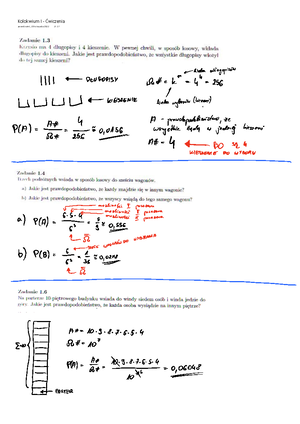 Kolokwium I - Ćwiczenia
Zadanie 1.3
Kasia ma 4 długopisy i 4 kieszenie. W pewnej chwili, w sposób losowy, wkłada
długopisy do kieszeni. Jakie jest prawdopodobieństwo, że wszystkie długopisy włożył
do tej samej kieszeni?
DŁUGOPISY
KIESZENIE
Ω# = kⁿ = 4⁴ = 256
P(A) = A#/Ω# = 4/256 ≈ 0,0156
A - prawdopodobieństwo, że
wszystkie będą w jednej kieszeni
A# = 4
Zadanie 1.4
Trzech podróżnych wsiada w sposób losowy do sześciu wagonów.
a) Jakie jest prawdopodobieństwo, że każdy znajdzie się w innym wagonie?
b) Jakie jest prawdopodobieństwo, że wszyscy wsiądą do tego samego wagonu?
a) P(A) = 6·5·4/6³ = 5/9 ≈ 0,556
b) P(B) = 6/6³ = 1/36 ≈ 0,0278
Zadanie 1.6
Na parterze 10-piętrowego budynku wsiada do windy siedem osób i winda jedzie do
góry. Jakie jest prawdopodobieństwo, że każda osoba wysiądzie na innym piętrze?
A# = 10·9·8·7·6·5·4
Ω# = 10⁷
P(A) = A#/Ω# = 10·9·8·7·6·5·4/10⁷ = 0,06048
PARTER